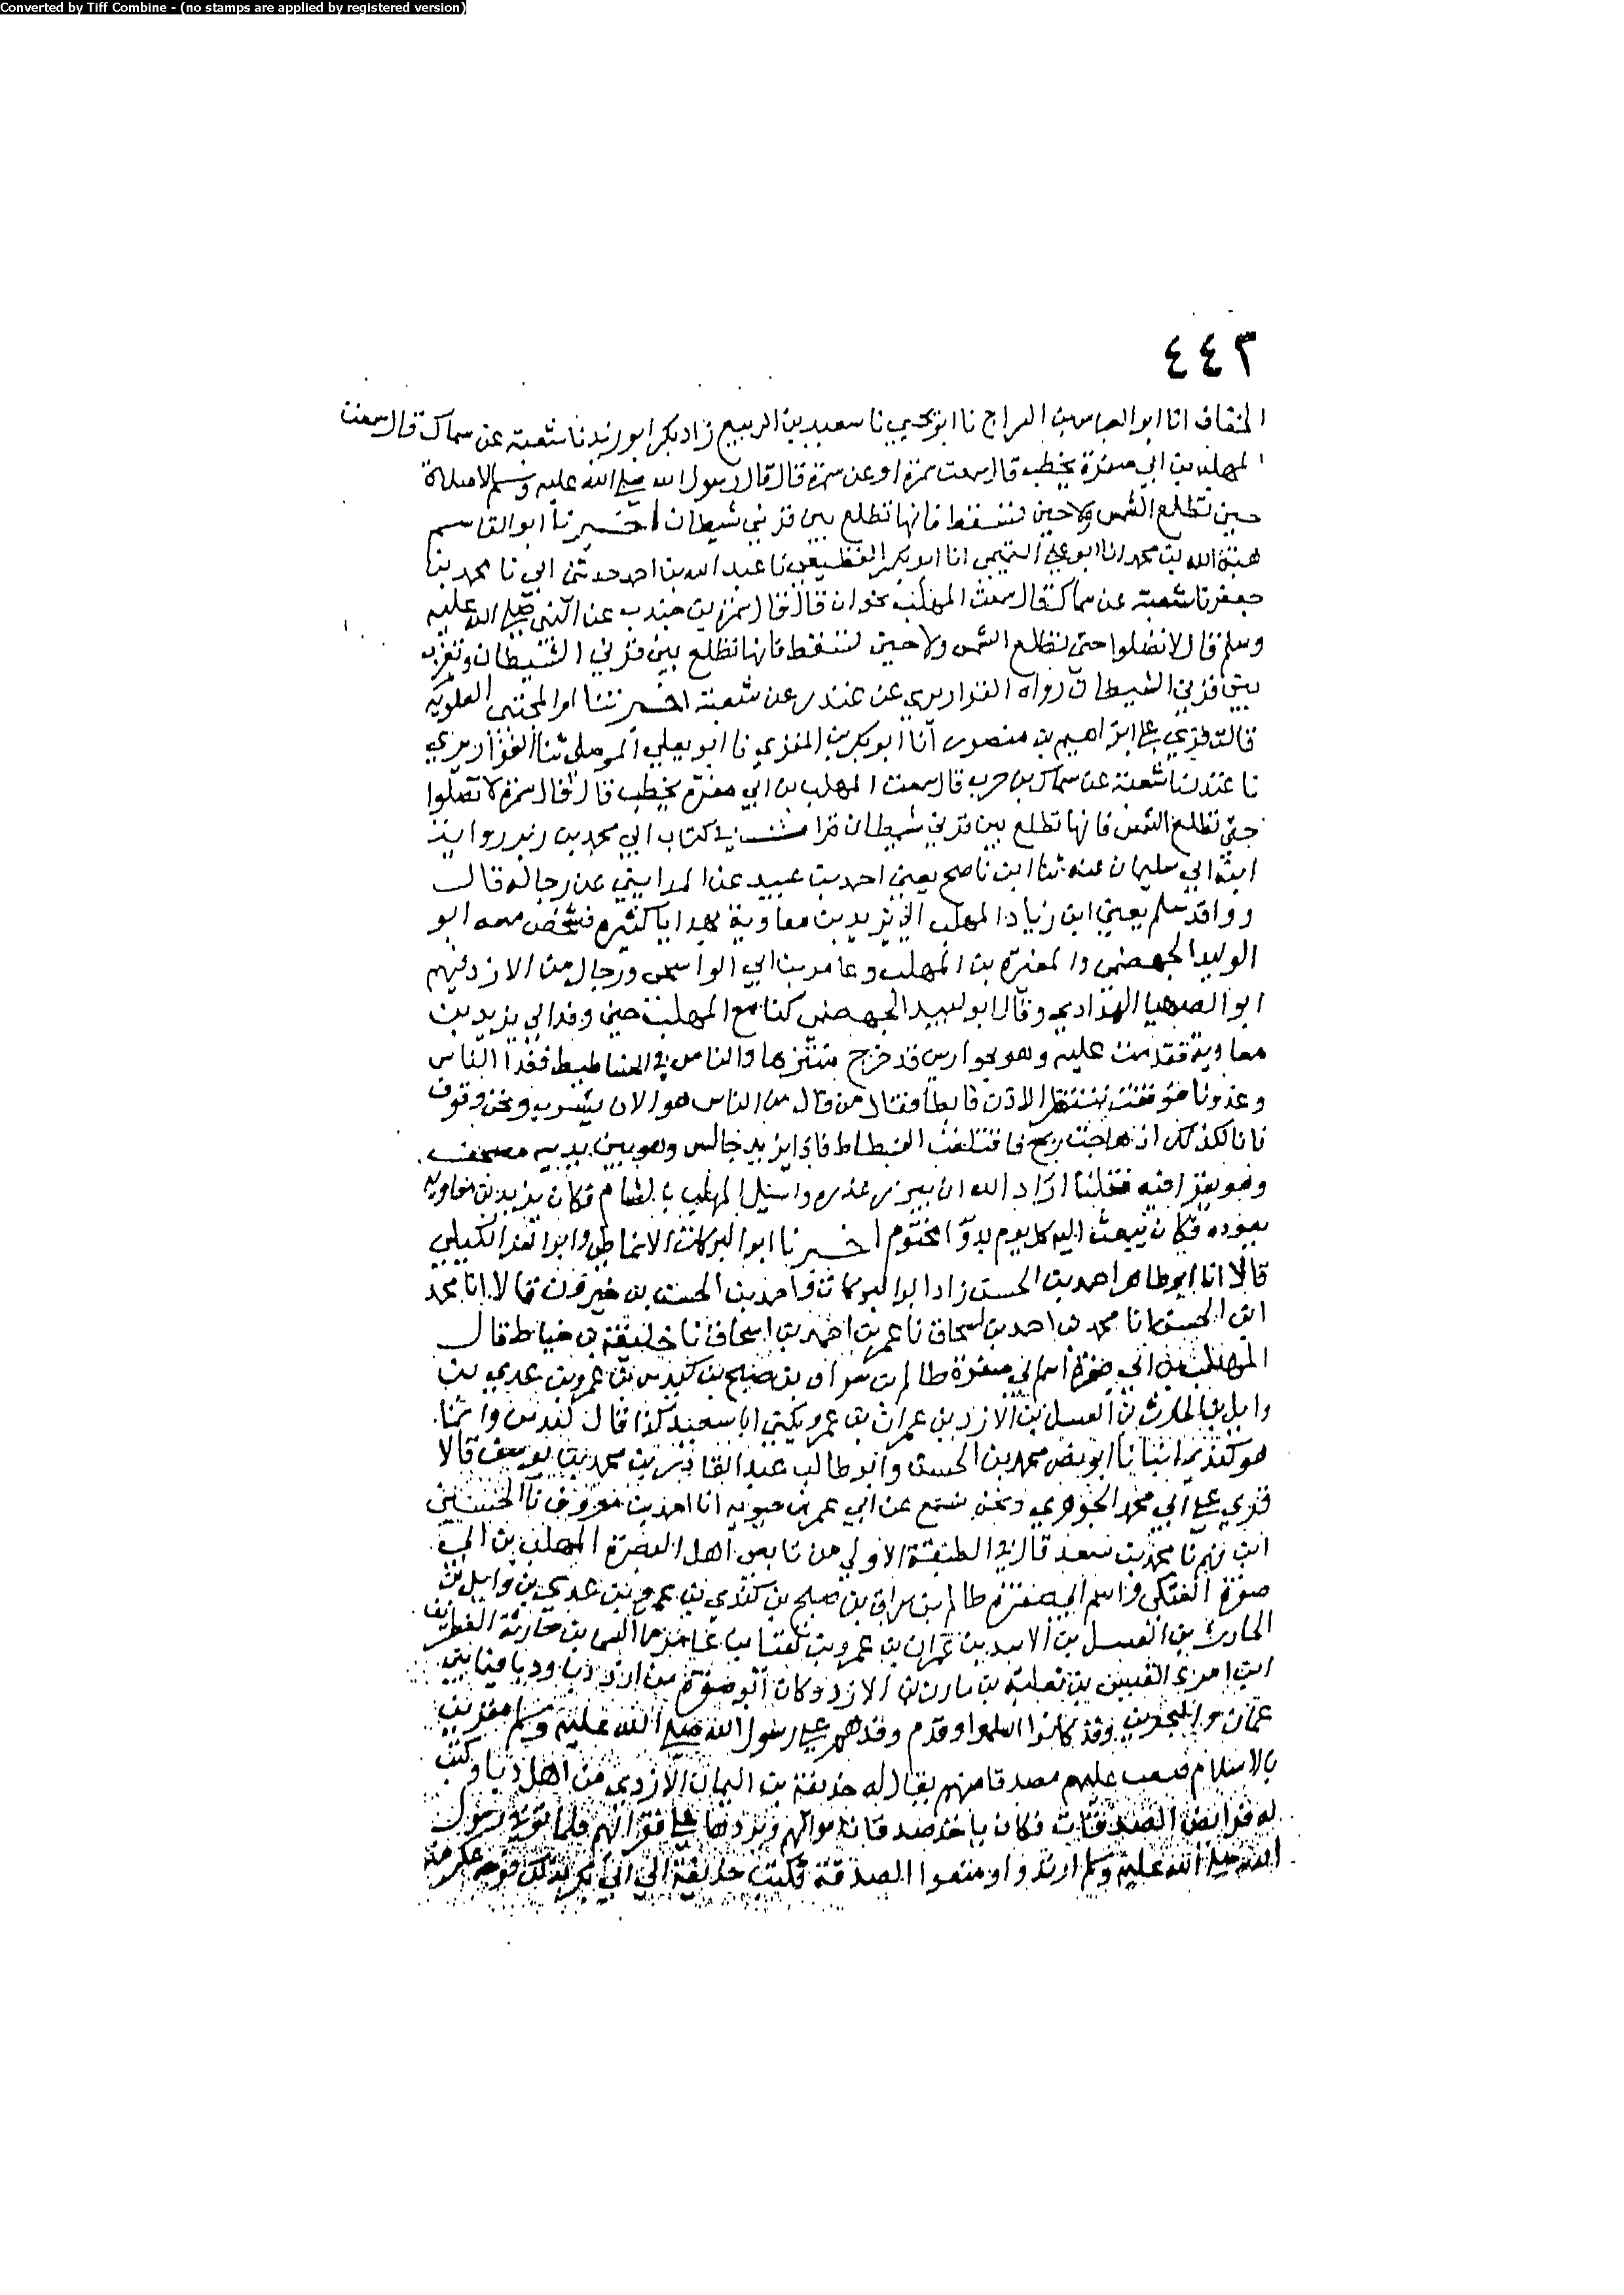 Converted by Tiff Combine - (no stamps are applied by registered version)
٤٤٣
الخفاف انا ابو العباس بن السراج نا ابو يحيي نا سعيد بن الربيع زاد بكر ابو زيد نا شعبة عن سماك قال سمعت
المهلب بن ابي صفرة يخطب قال سمعت سمرة او عن سمرة قال قال رسول الله صلي الله عليه وسلم لا صلاة
حين تطلع الشمس ولا حين تسقط فانها تطلع بين قرني شيطان اخبرنا ابو القاسم
هبة الله بن محمد انا ابو علي التميمي انا ابو بكر القطيعي نا عبد الله بن احمد حدثني ابي نا محمد بن
جعفر نا شعبة عن سماك قال سمعت المهلب يخطب قال قال سمرة بن جندب عن النبي صلي الله عليه
وسلم قال لا تصلوا حتي تطلع الشمس ولا حين تسقط فانها تطلع بين قرني الشيطان وتغرب
بين قرني الشيطان رواه القواريري عن غندر عن شعبة اخبرتنا ام المجتبي العلوية
قالت قري علي ابراهيم بن منصور انا ابو بكر بن المقري نا ابو يعلي الموصلي ثنا القواريري
نا غندر نا شعبة عن سماك بن حرب قال سمعت المهلب بن ابي صفرة يخطب قال قال سمرة لا تصلوا
حتي تطلع الشمس فانها تطلع بين قرني شيطان قرات في كتاب ابي محمد بن زبر رواية
ابنه ابي سليمان عنه ثنا ابن ناصح يعني احمد بن عبيد عن المدايني عن رجاله قال
ووافد سلم يعني ابن زياد المهلب الي يزيد بن معاوية بهدايا كثيرة فشخص معه ابو
الوليد الجهضمي والمغيرة بن المهلب وعامر بن ابي الواسمي ورجال من الازد فيهم
ابو الصهبا الهدادي وقال ابو لبيد الجهضمي كنا مع المهلب حين وفد الي يزيد بن
معاوية فقدمت عليه وهو بحوارين قد خرج متنزها والناس في الفساطيط فغدا الناس
وغدونا فوقفت ننتظر الاذن فابطا فقال من قال من الناس هو الان يشرب ونحن وقوف
فانا لكذلك اذ هاجت ريح فاقتلعت الفسطاط فاذا يزيد جالس وهو بين يديه مصحف
وهو يقرا فيه فقلنا اراد الله ان يبرز عذره واسبل المهلب بالشام فكان يزيد بن معاوية
يعوده فكان يبعث اليه كل يوم بدوا مختوم اخبرنا ابو البركات الانماطي وابو العز الكيلي
قالا انا ابو طاهر احمد بن الحسن زاد ابو البركات واحمد بن الحسن بن خيرون قالا انا محمد
ابن الحسن انا محمد بن احمد بن اسحاق نا عمر بن احمد بن اسحاق نا خليفة بن خياط قال
المهلب بن ابي صفرة اسم ابي صفرة ظالم بن سراق بن صبح بن كندس بن عمرو بن عدي بن
وايل بن الحارث بن العسل بن الازد بن عمران بن عمرو يكني ابا سعيد كذا قال كندس وانما
هو كندي انبانا ابو نصر محمد بن الحسن وابو طالب عبد القادر بن محمد بن يوسف قالا
قري علي ابي محمد الجوهري ونحن نسمع عن ابي عمر بن حيويه انا احمد بن معروف نا الحسين
ابن فهم نا محمد بن سعد قال في الطبقة الاولي من تابعي اهل البصرة المهلب بن ابي
صفرة العتكي واسم ابي صفرة ظالم بن سراق بن صبح بن كندي بن عمرو بن عدي بن وايل بن
الحارث بن العسل بن الاسد بن عمران بن عمرو بن عامر ما السما بن حارثة الغطريف
ابن امرء القيس بن ثعلبة بن مازن بن الازد وكان ابو صفرة من ازد دبا ودبا فيما بين
عمان والبحرين وقد كانوا اسلموا وقدم وفدهم علي رسول الله صلي الله عليه وسلم مقرين
بالاسلام فبعث عليهم مصدقا منهم يقال له حذيفة بن اليمان الازدي من اهل دبا وكتب
له فرايض الصدقات فكان ياخذ صدقات اموالهم ويردها علي فقرائهم فلما توفي رسول
الله صلي الله عليه وسلم ارتدوا ومنعوا الصدقة فكتب حذيفة الي ابي بكر بذلك فوجه عكرمة